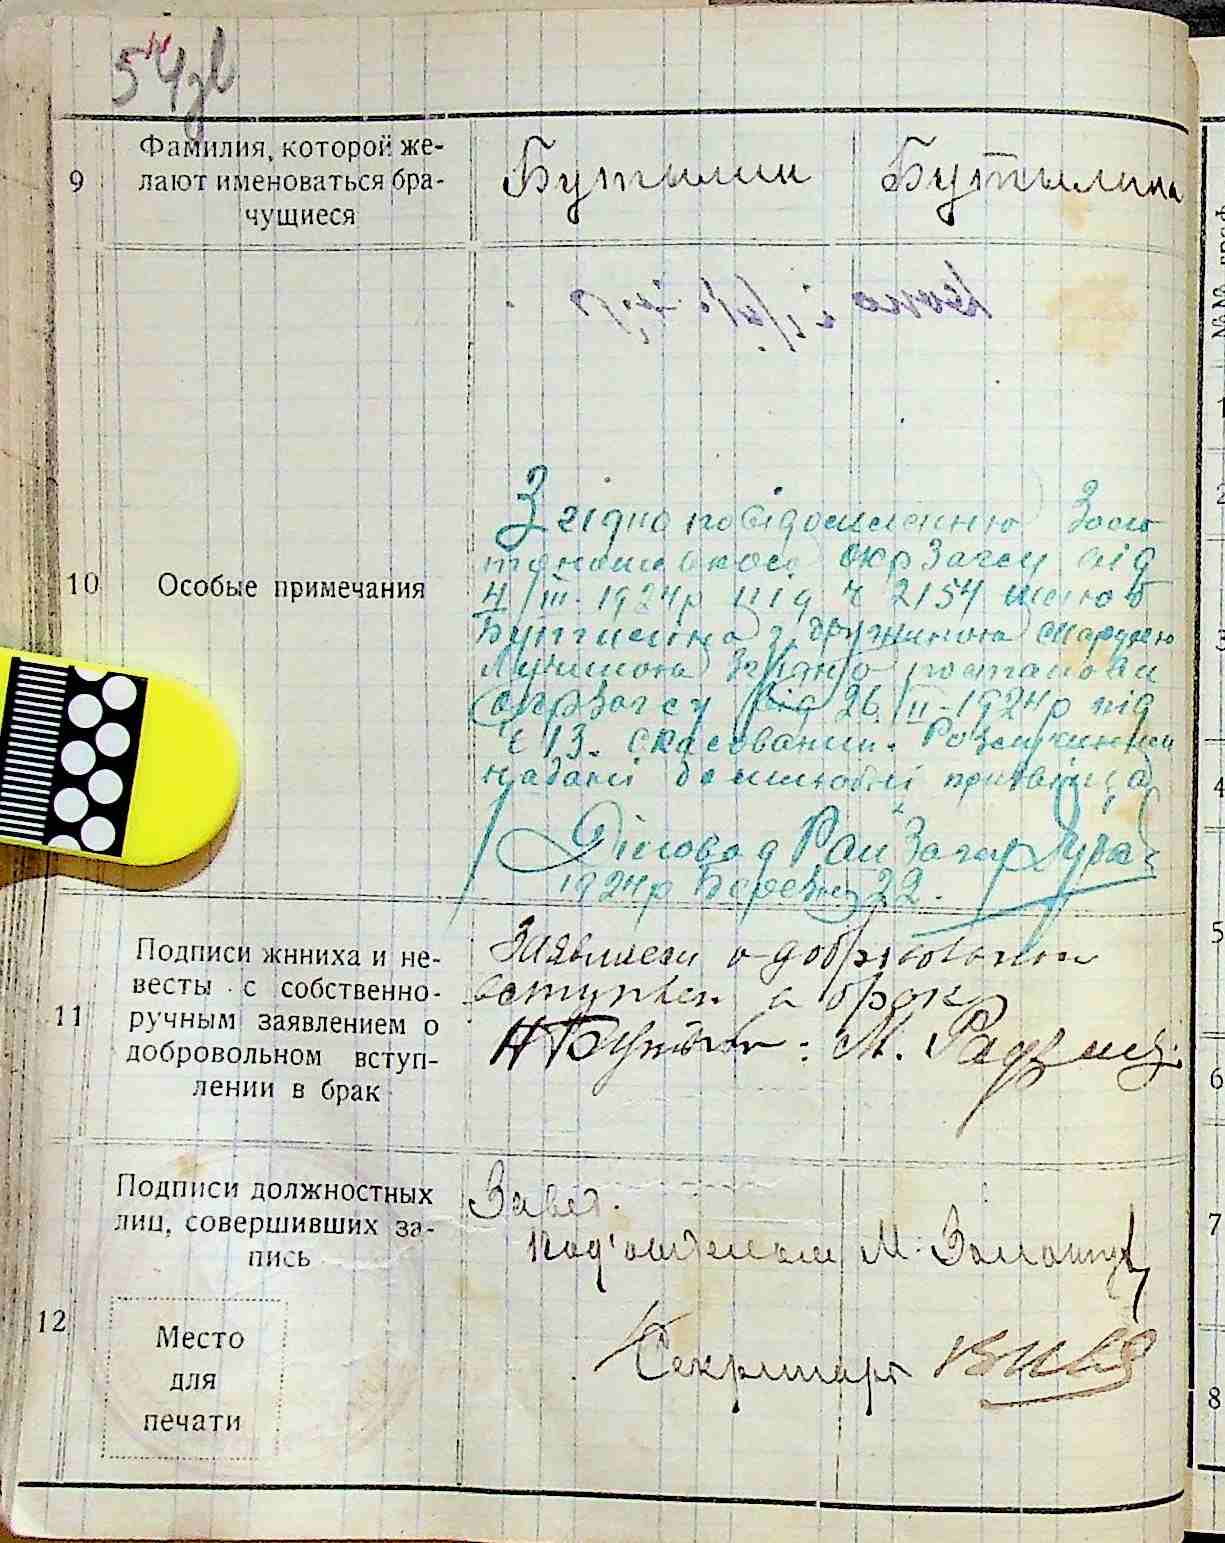 54
9
Фамилия, которой же-
лают именоваться бра-
чущиеся
Бутылин Бутылина
10
Особые примечания
Згідно повідомленню
окрЗагсу від
4/III-1924р під ч 2154 шлюб
Бутиліна з дружиною
згідно постанови
ОкрЗагсу від 26/II-1924р під
ч 13. скасований. Розлученим
надані дошлюбні прізвища
Діловод РайЗагсу
1924р Березня 22.
11
Подписи жнниха и не-
весты с собственно-
ручным заявлением о
добровольном вступ-
лении в брак
Заявляем о добровольном
вступлен. в брак
Н Бутылин: М.
12
Подписи должностных
лиц, совершивших за-
пись
Завед.
Под'отделом М.
Секретарь
Место
для
печати
№№ граф
1
2
3
4
5
6
7
8